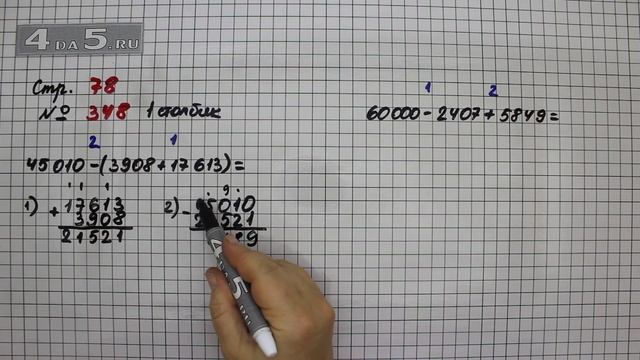 4DA5.RU
Стр. 78
№ 348 1 столбик
2 1
45010-(3908+17613)=
1) + 17613
3908
21521
2) -
1 2
60000-2407+5849=
4DA5